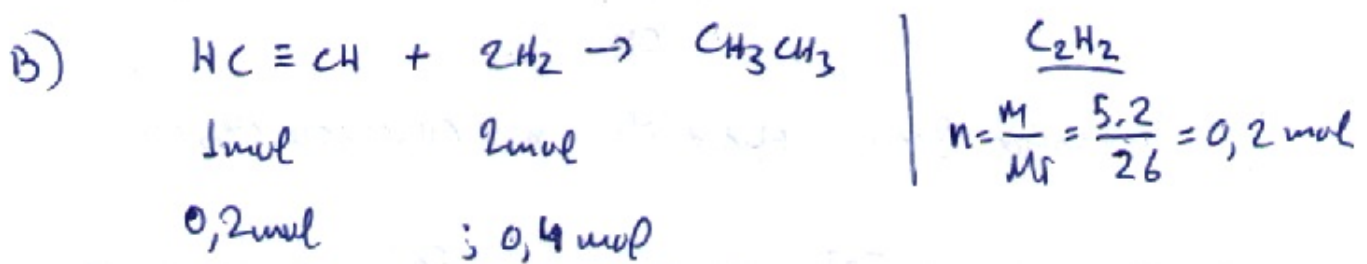 B) HC ≡ CH + 2H₂ → CH₃CH₃
1mol 2mol
0,2mol ; 0,4 mol
C₂H₂
n = m/Mr = 5,2/26 = 0,2 mol